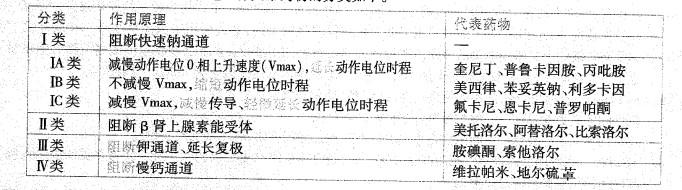 分类 作用原理 代表药物
Ⅰ类 阻断快速钠通道 —
ⅠA类 减慢动作电位0相上升速度(Vmax),延长动作电位时程 奎尼丁、普鲁卡因胺、丙吡胺
ⅠB类 不减慢Vmax,缩短动作电位时程 美西律、苯妥英钠、利多卡因
ⅠC类 减慢Vmax,减慢传导、轻微延长动作电位时程 氟卡尼、恩卡尼、普罗帕酮
Ⅱ类 阻断β肾上腺素能受体 美托洛尔、阿替洛尔、比索洛尔
Ⅲ类 阻断钾通道、延长复极 胺碘酮、索他洛尔
Ⅳ类 阻断慢钙通道 维拉帕米、地尔硫䓬